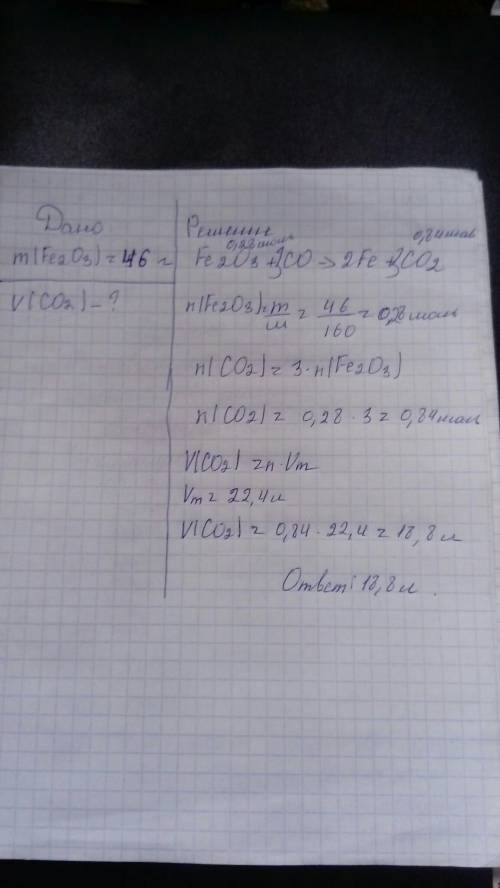 Дано
m(Fe2O3) = 46 г
V(CO2) - ?
Решение
0,28 моль 0,84 моль
Fe2O3 + 3CO → 2Fe + 3CO2
n(Fe2O3) = m/M = 46/160 = 0,28 моль
n(CO2) = 3·n(Fe2O3)
n(CO2) = 0,28 · 3 = 0,84 моль
V(CO2) = n·Vm
Vm = 22,4 л
V(CO2) = 0,84 · 22,4 = 18,8 л
Ответ: 18,8 л.